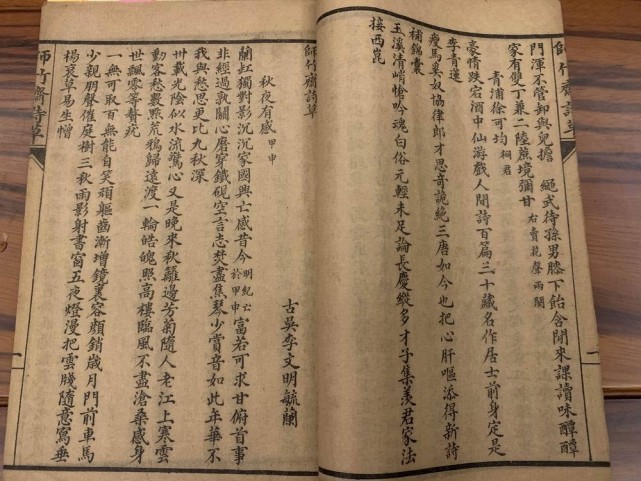 師竹齋詩草
門渾不管卻與兒擔　繩武待孫男膝下飴含閒來課讀味醰醰
家有雙丁兼二陸蔗境彌甘 右賣花聲兩闋
青浦徐可均 桐君
豪情跌宕酒中仙游戲人間詩百篇三十藏名作居士前身定是
李青蓮
瘦馬奚奴協律郎才思奇詭絕三唐如今也把心肝嘔添得新詩
補錦囊
玉溪清峭愴吟魂白俗元輕未足論長慶縱多才子集羨君家法
接西崑
師竹齋詩草
古吳李文明毓蘭
秋夜有感 甲申
蘭缸獨對影沉沉家國興亡感昔今 明紀亡於甲申 富若可求甘俯首事
非經過孰關心磨穿鐵硯空言志焚盡焦琴少賞音如此年華不
我與愁思更比九秋深
卅載光陰似水流驚心又是晚來秋籬邊芳菊隨人老江上寒雲
動客愁數點荒鴉歸遠渡一輪皓魄照高樓臨風不盡滄桑感身
世飄零等贅疣
一無可取百無能自笑頑軀齒漸增鏡裏容顏銷歲月門前車馬
少親朋聲催庭樹三秋雨影射書窗五夜燈漫把雲牋隨意寫垂
楊哀草易生憎
師竹齋詩草
一